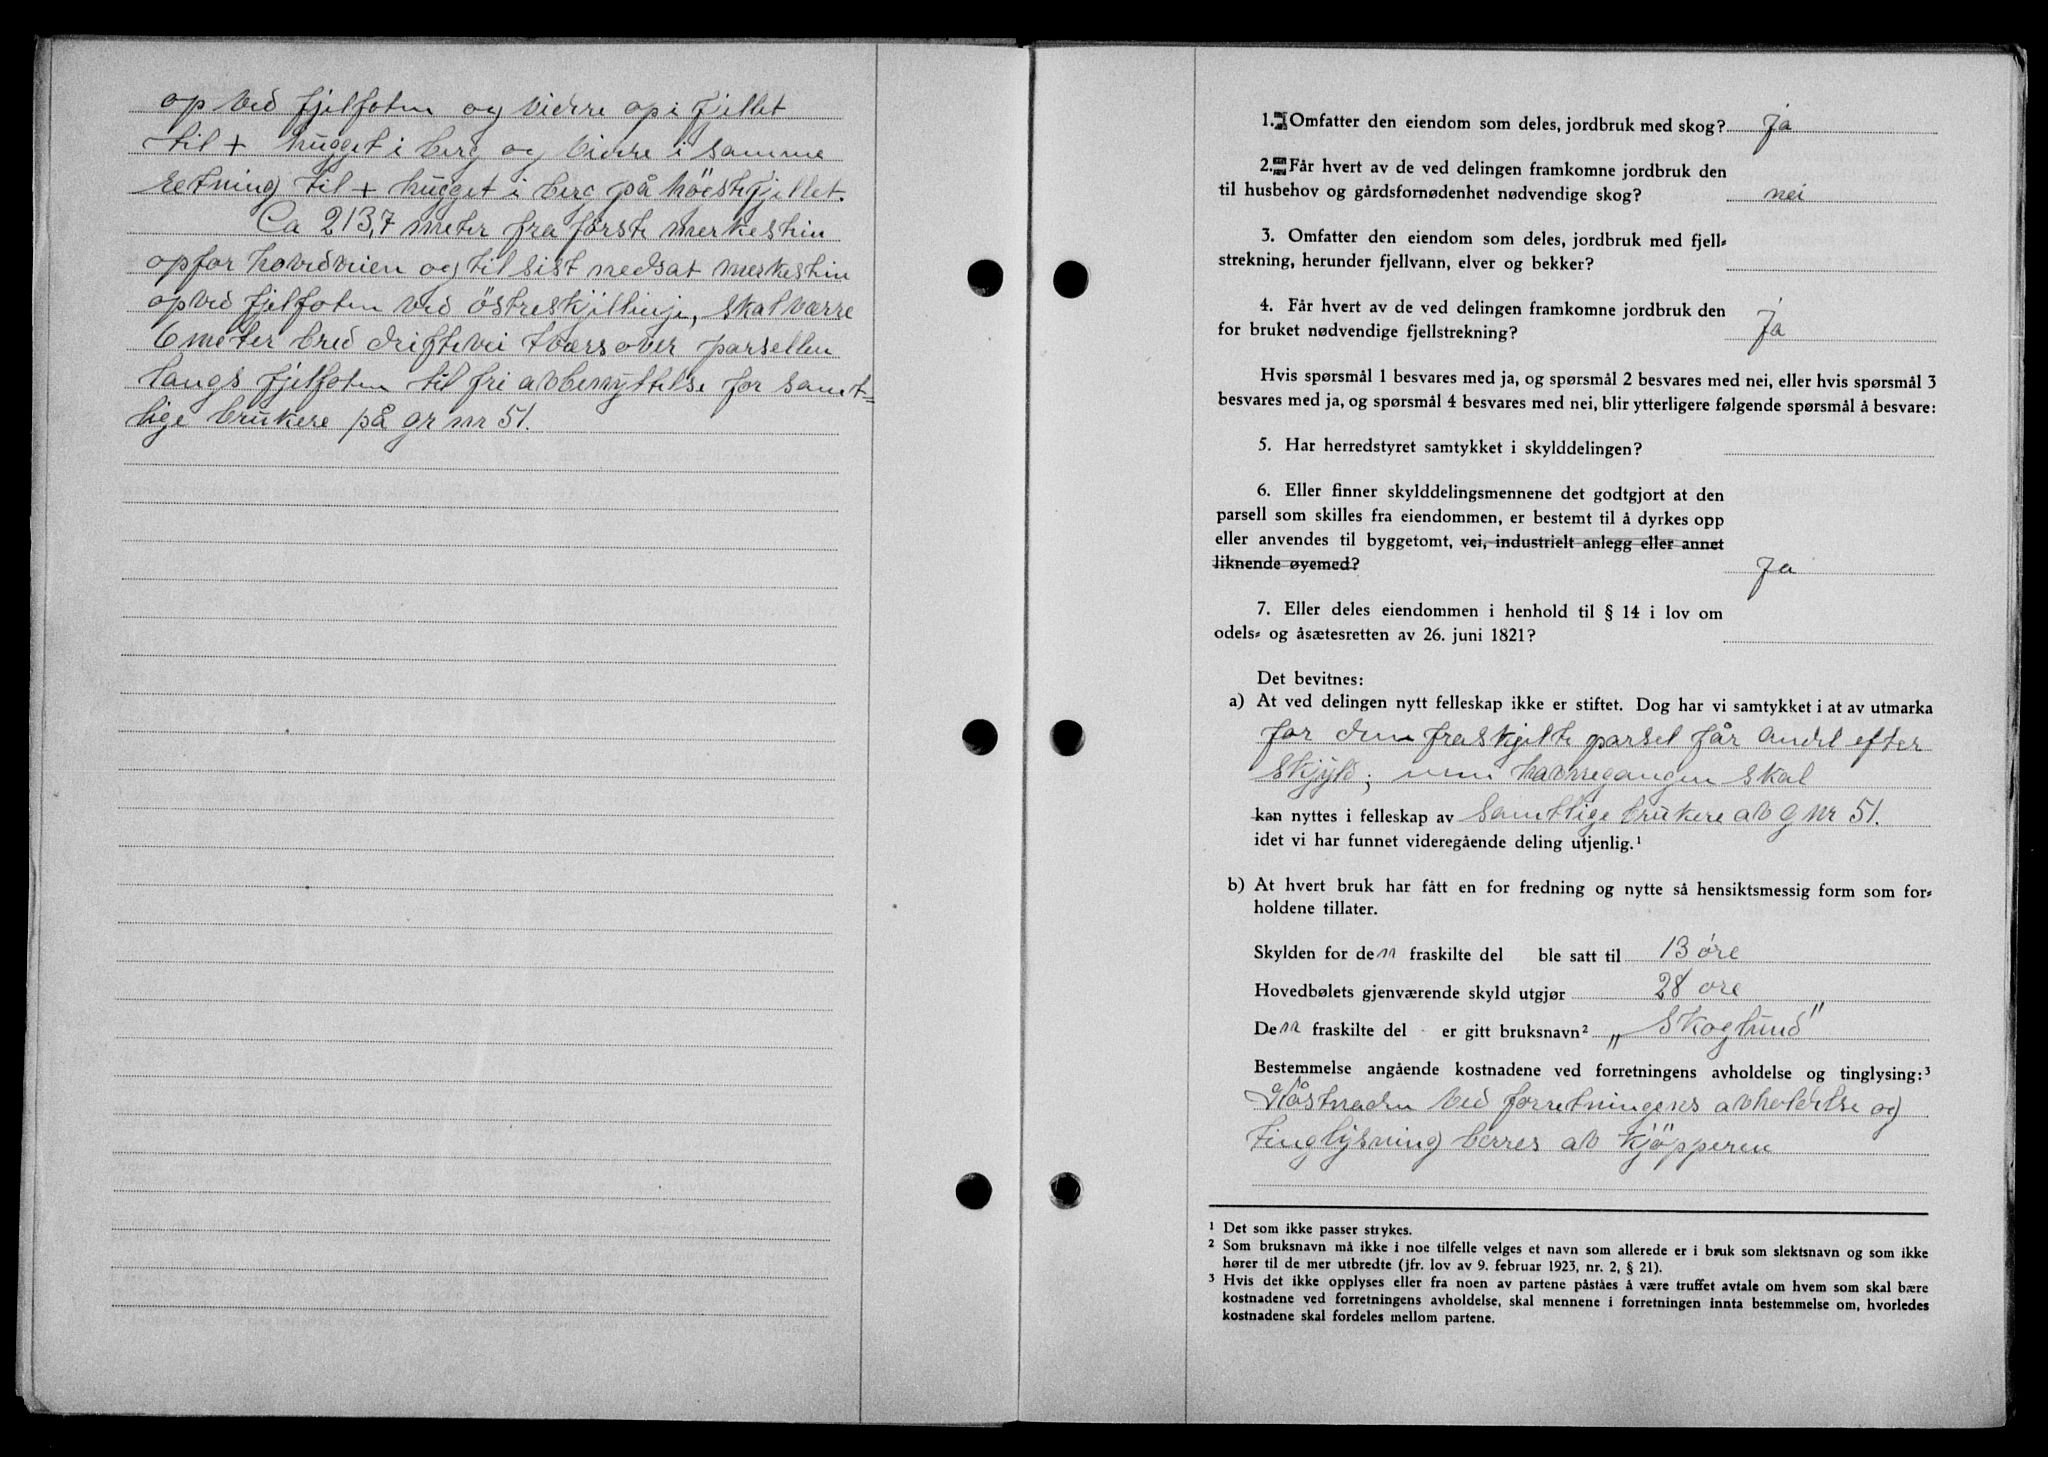 op ved fjelfoten og vidrre op i fjellet
til + hugget i berg og vidre i samme
retning til + hugget i berg på höiste fjellet.
Ca 213,7 meter fra første merkestein
opfor hovedveien og til sist nedsat merkestein
op ved fjelfoten ved östreskjellinje, skal værre
6 meter bred driftevei tværs over parsellen
langs fjelfoten til fri avbenyttelse for samt=
lige brukere på gr nr 51.
1. Omfatter den eiendom som deles, jordbruk med skog? Ja
2. Får hvert av de ved delingen framkomne jordbruk den
til husbehov og gårdsfornødenhet nødvendige skog? nei
3. Omfatter den eiendom som deles, jordbruk med fjell=
strekning, herunder fjellvann, elver og bekker?
4. Får hvert av de ved delingen framkomne jordbruk den
for bruket nødvendige fjellstrekning? Ja
Hvis spørsmål 1 besvares med ja, og spørsmål 2 besvares med nei, eller hvis spørsmål 3
besvares med ja, og spørsmål 4 besvares med nei, blir ytterligere følgende spørsmål å besvare:
5. Har herredstyret samtykket i skylddelingen?
6. Eller finner skylddelingsmennene det godtgjort at den
parsell som skilles fra eiendommen, er bestemt til å dyrkes opp
eller anvendes til byggetomt, vei, industrielt anlegg eller annet
liknende øyemed? Ja
7. Eller deles eiendommen i henhold til § 14 i lov om
odels= og åsætesretten av 26. juni 1821?
Det bevitnes:
a) At ved delingen nytt felleskap ikke er stiftet. Dog har vi samtykket i at av utmarka
for den fraskjelte parsel får andel efter
skjyld; men havnegangen skal
kan nyttes i felleskap av samtlige brukere av g nr 51.
idet vi har funnet videregående deling utjenlig.¹
b) At hvert bruk har fått en for fredning og nytte så hensiktsmessig form som for=
holdene tillater.
Skylden for den fraskilte del ble satt til 13 øre
Hovedbølets gjenværende skyld utgjør 28 øre
Den fraskilte del er gitt bruksnavn² „Skoglund"
Bestemmelse angående kostnadene ved forretningens avholdelse og tinglysing:³
Kåstnaden ved forretningens avholdelse og
tinglysning berres av kjöpperen
¹ Det som ikke passer strykes.
² Som bruksnavn må ikke i noe tilfelle velges et navn som allerede er i bruk som slektsnavn og som ikke
hører til de mer utbredte (jfr. lov av 9. februar 1923, nr. 2, § 21).
³ Hvis det ikke opplyses eller fra noen av partene påståes å være truffet avtale om hvem som skal bære
kostnadene ved forretningens avholdelse, skal mennene i forretningen innta bestemmelse om, hvorledes
kostnadene skal fordeles mellom partene.